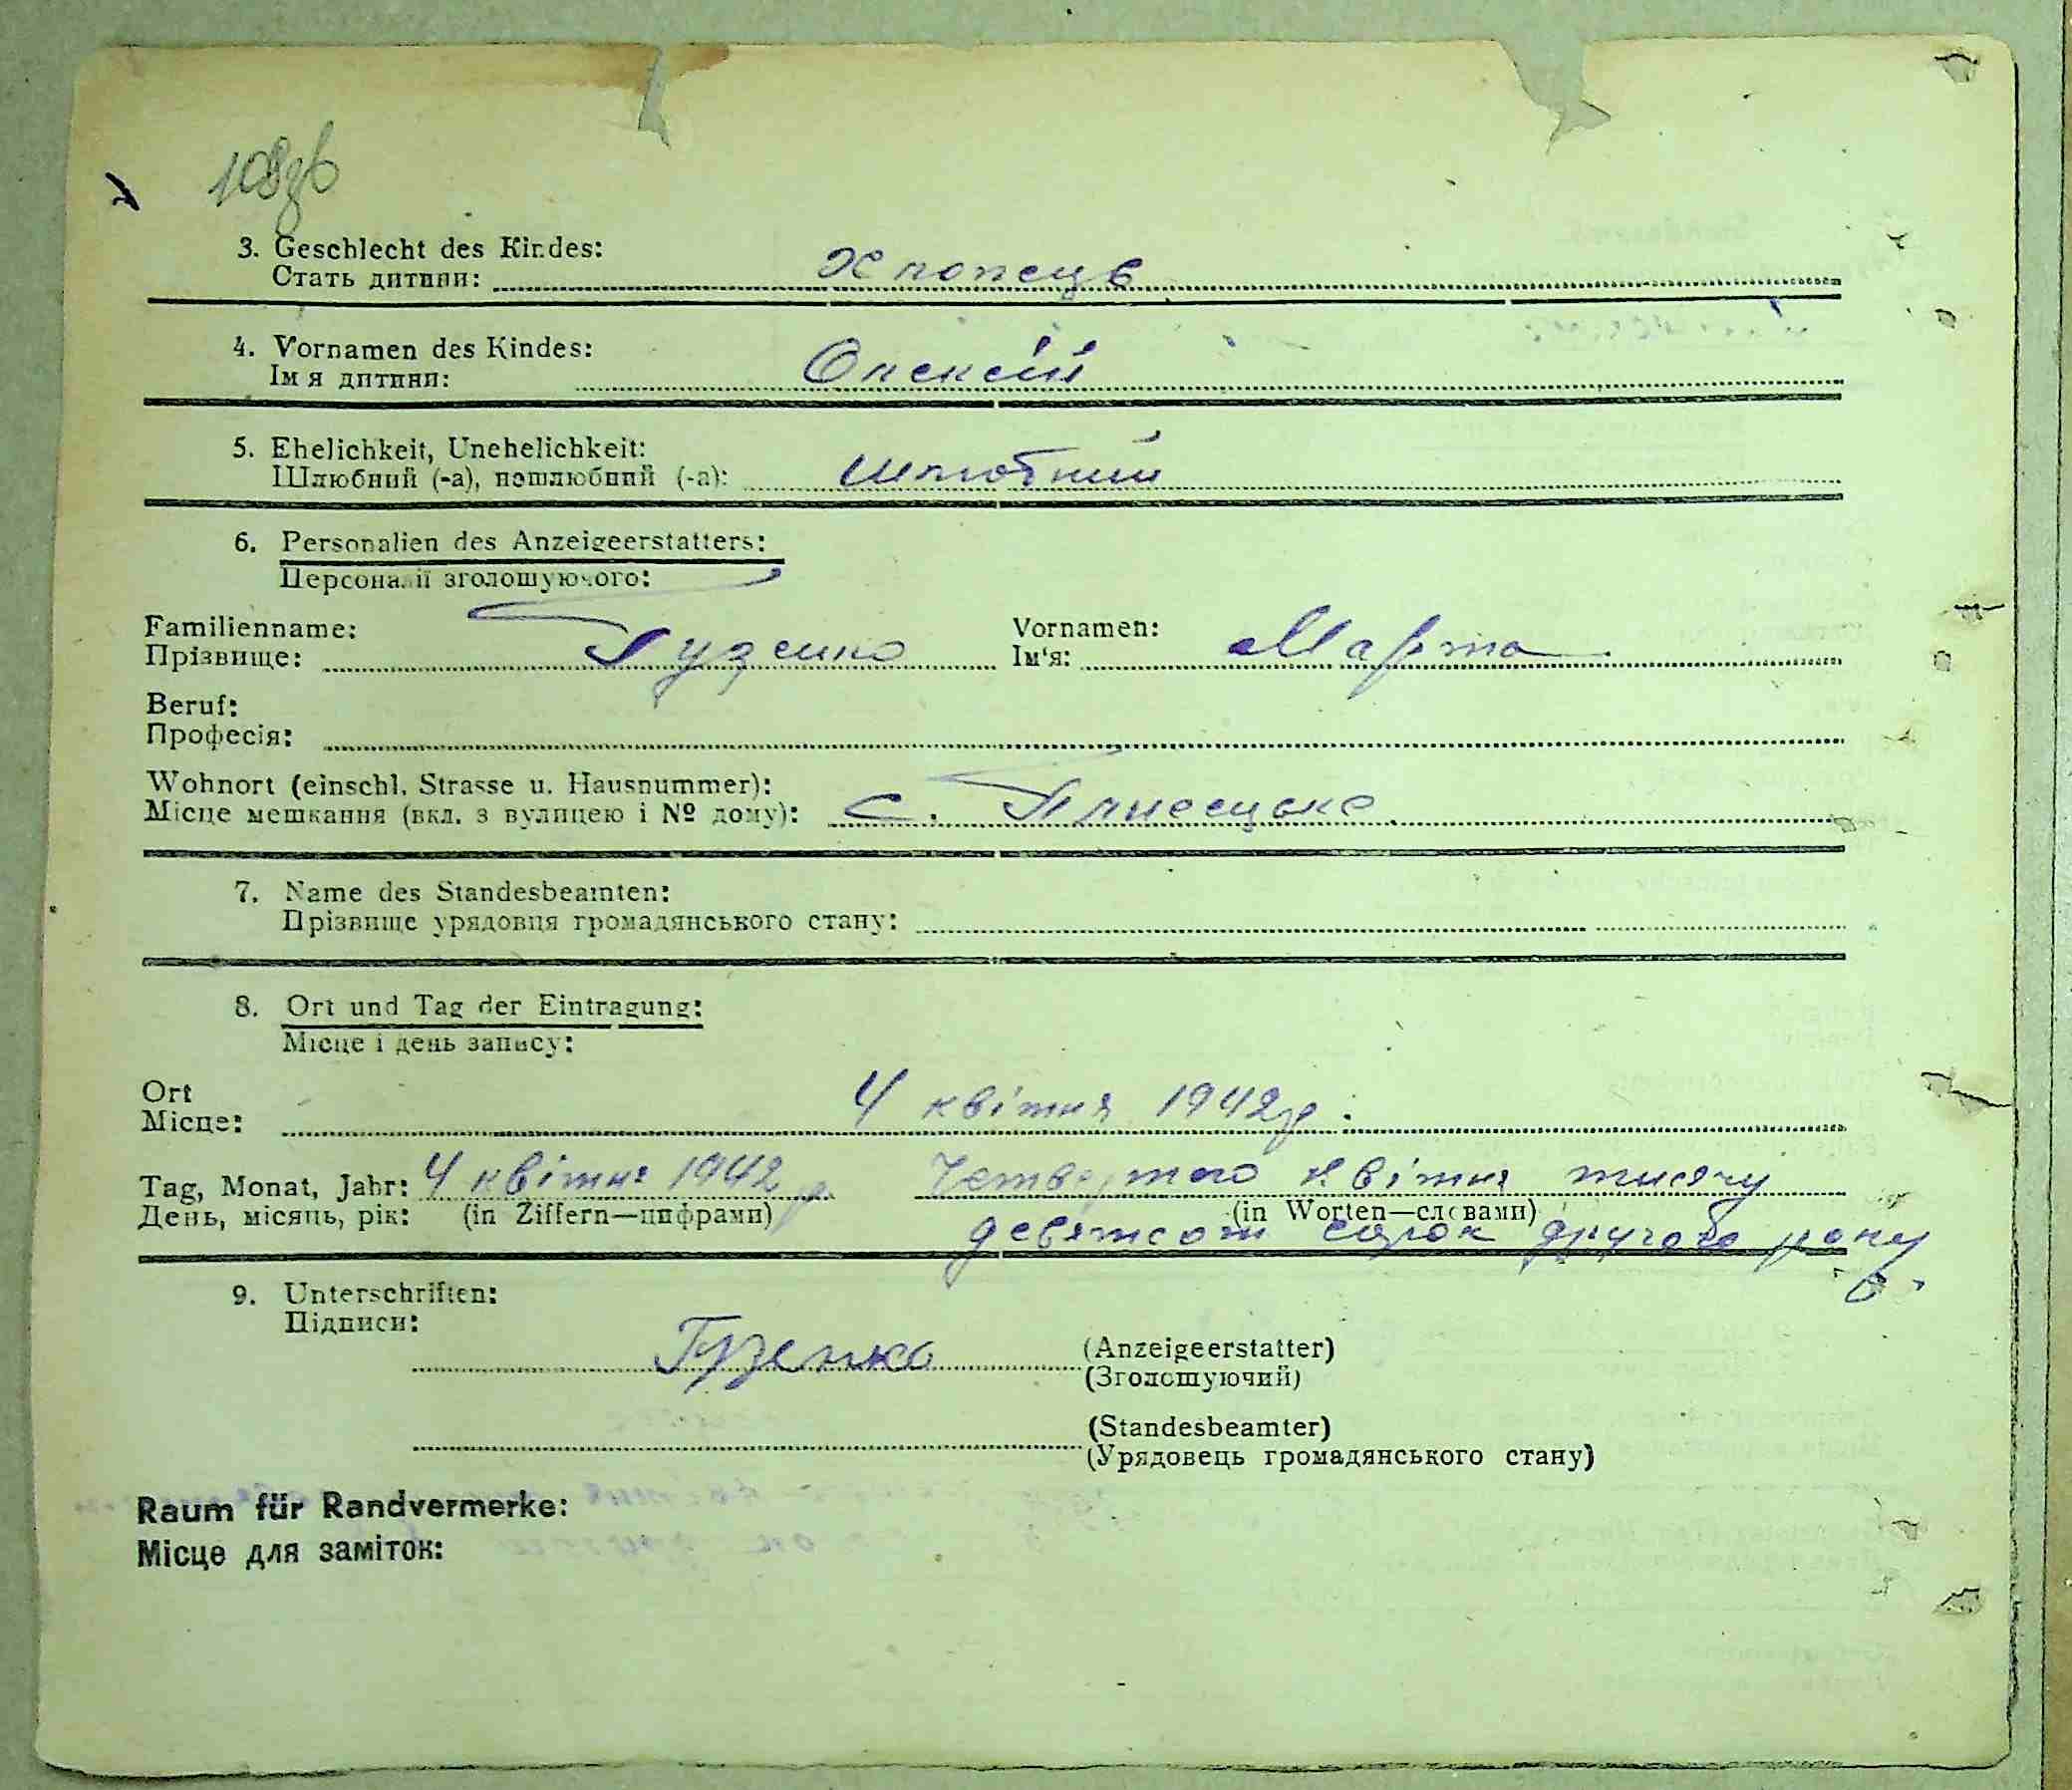 108зв
3. Geschlecht des Kindes:
Стать дитини: Хлопець
4. Vornamen des Kindes:
Ім я дитини: Олексій
5. Ehelichkeit, Unehelichkeit:
Шлюбний (-а), нешлюбний (-а): шлюбний
6. Personalien des Anzeigeerstatters:
Персоналії зголошуючого:
Familienname: Vornamen:
Прізвище: Гузенко Ім'я: Марта
Beruf:
Професія:
Wohnort (einschl. Strasse u. Hausnummer):
Місце мешкання (вкл. з вулицею і № дому): с.
7. Name des Standesbeamten:
Прізвище урядовця громадянського стану:
8. Ort und Tag der Eintragung:
Місце і день запису:
Ort
Місце: 4 квітня 1942 р.
Tag, Monat, Jahr: 4 квітня 1942 р. Четвертого квітня тисячу
День, місяць, рік: (in Ziffern—цифрами) (in Worten—словами)
девятсот сорок другого року
9. Unterschriften:
Підписи:
Гузенко (Anzeigeerstatter)
(Зголошуючий)
(Standesbeamter)
(Урядовець громадянського стану)
Raum für Randvermerke:
Місце для заміток: